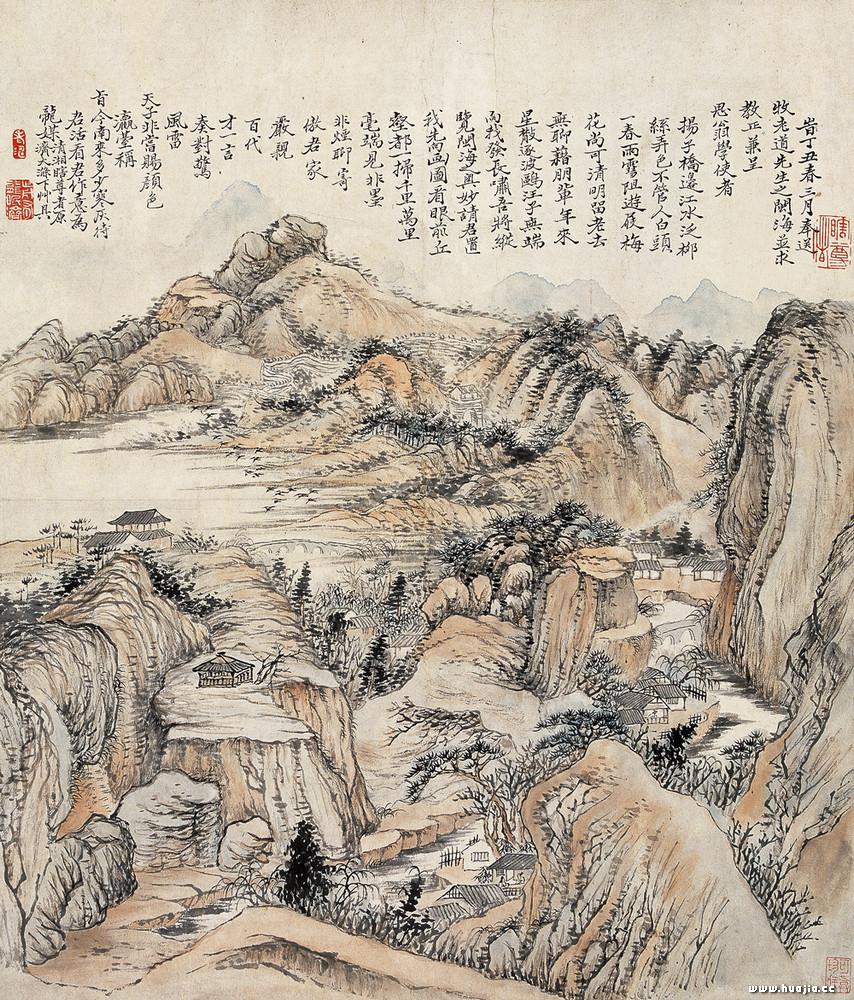 旹丁丑春三月奉送
牧老道先生之閩海並求
教正兼呈
思翁學使者
揚子橋邊江水泛柳
絲弄色不管人白頭
一春雨雪阻遊屐梅
花尚可清明留老去
無聊藉朋輩年來
星散逐波鷗汪子無端
向我發長嘯吾將縱
覽閩海之奧妙請君置
我先畫圖看眼前丘
壑都一掃千里萬里
毫端見非墨
非煙聊寄
君家
嚴親
百代
才一言
奏對驚
風雷
天子非常賜顏色
瀛臺稱
旨令南來多少寒灰待
君活看君作意為
龍媒 清湘瞎尊者原
濟大滌下艸具
瞎尊者
www.huajia.cc